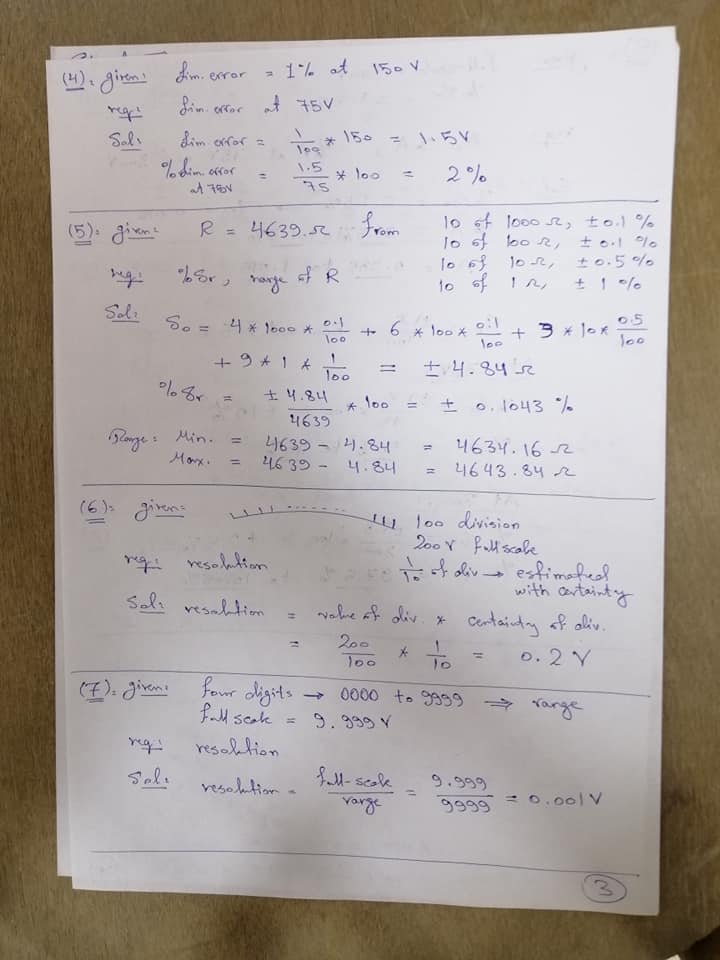 (4): given: lim. error = 1% at 150 V
req: lim. error at 75V
Sol: lim. error = 1/100 * 150 = 1.5V
% lim. error at 75V = 1.5/75 * 100 = 2%
(5): given: R = 4639 Ω from 10 of 1000 Ω, ±0.1 %
10 of 100 Ω, ±0.1 %
10 of 10 Ω, ±0.5 %
req: % δr, range of R 10 of 1 Ω, ± 1 %
Sol: δo = 4 * 1000 * 0.1/100 + 6 * 100 * 0.1/100 + 3 * 10 * 0.5/100
+ 9 * 1 * 1/100 = ± 4.84 Ω
% δr = ± 4.84/4639 * 100 = ± 0.1043 %
Range: Min. = 4639 - 4.84 = 4634.16 Ω
Max. = 4639 - 4.84 = 4643.84 Ω
(6): given: 100 division
200 V full scale
req: resolution 1/10 of div → estimated
with certainty
Sol: resolution = value of div. * certainty of div.
= 200/100 * 1/10 = 0.2 V
(7): given: four digits → 0000 to 9999 ⇒ range
full scale = 9.999 V
req: resolution
Sol: resolution = full-scale/range = 9.999/9999 = 0.001 V
3